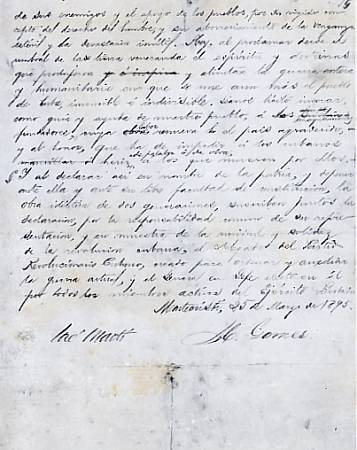 de sus enemigos y el apoyo de los pueblos, por su rígido con-
cepto del derecho del hombre, y su aborrecimiento de la venganza
estéril y la devastación inútil. Hoy, al proclamar desde el
umbral de la tierra venerada el espíritu y doctrinas
que produjeron y alientan la guerra entera
y humanitaria en que se une aún más el pueblo
de Cuba, invencible e indivisible, séanos lícito invocar,
como guía y ayuda de nuestro pueblo, a los
fundadores, cuya labor renueva el país agradecido,
y al honor, que ha de impedir a los cubanos
herir, de palabra o de obra, a los que mueren por ellos.
Y al declarar así en nombre de la patria, y deponer
ante ella y ante su libre facultad de constitución, la
obra idéntica de dos generaciones, suscriben juntos la
declaración, por la responsabilidad común de su repre-
sentación, y en muestra de la unidad y solidez
de la revolución cubana, el Delegado del Partido
Revolucionario Cubano, creado para ordenar y auxiliar
la guerra actual, y el General en Jefe electo en él
por todos los miembros activos del Ejército Libertador.
Montecristi, 25 de Marzo de 1895.
José Martí M. Gomez